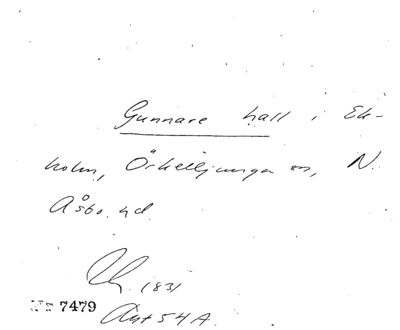 Gunnare hall i Ek-
holm, Örkelljunga sn, N.
Åsbo hd.
1831
Nr 7479
Avt 54 A.